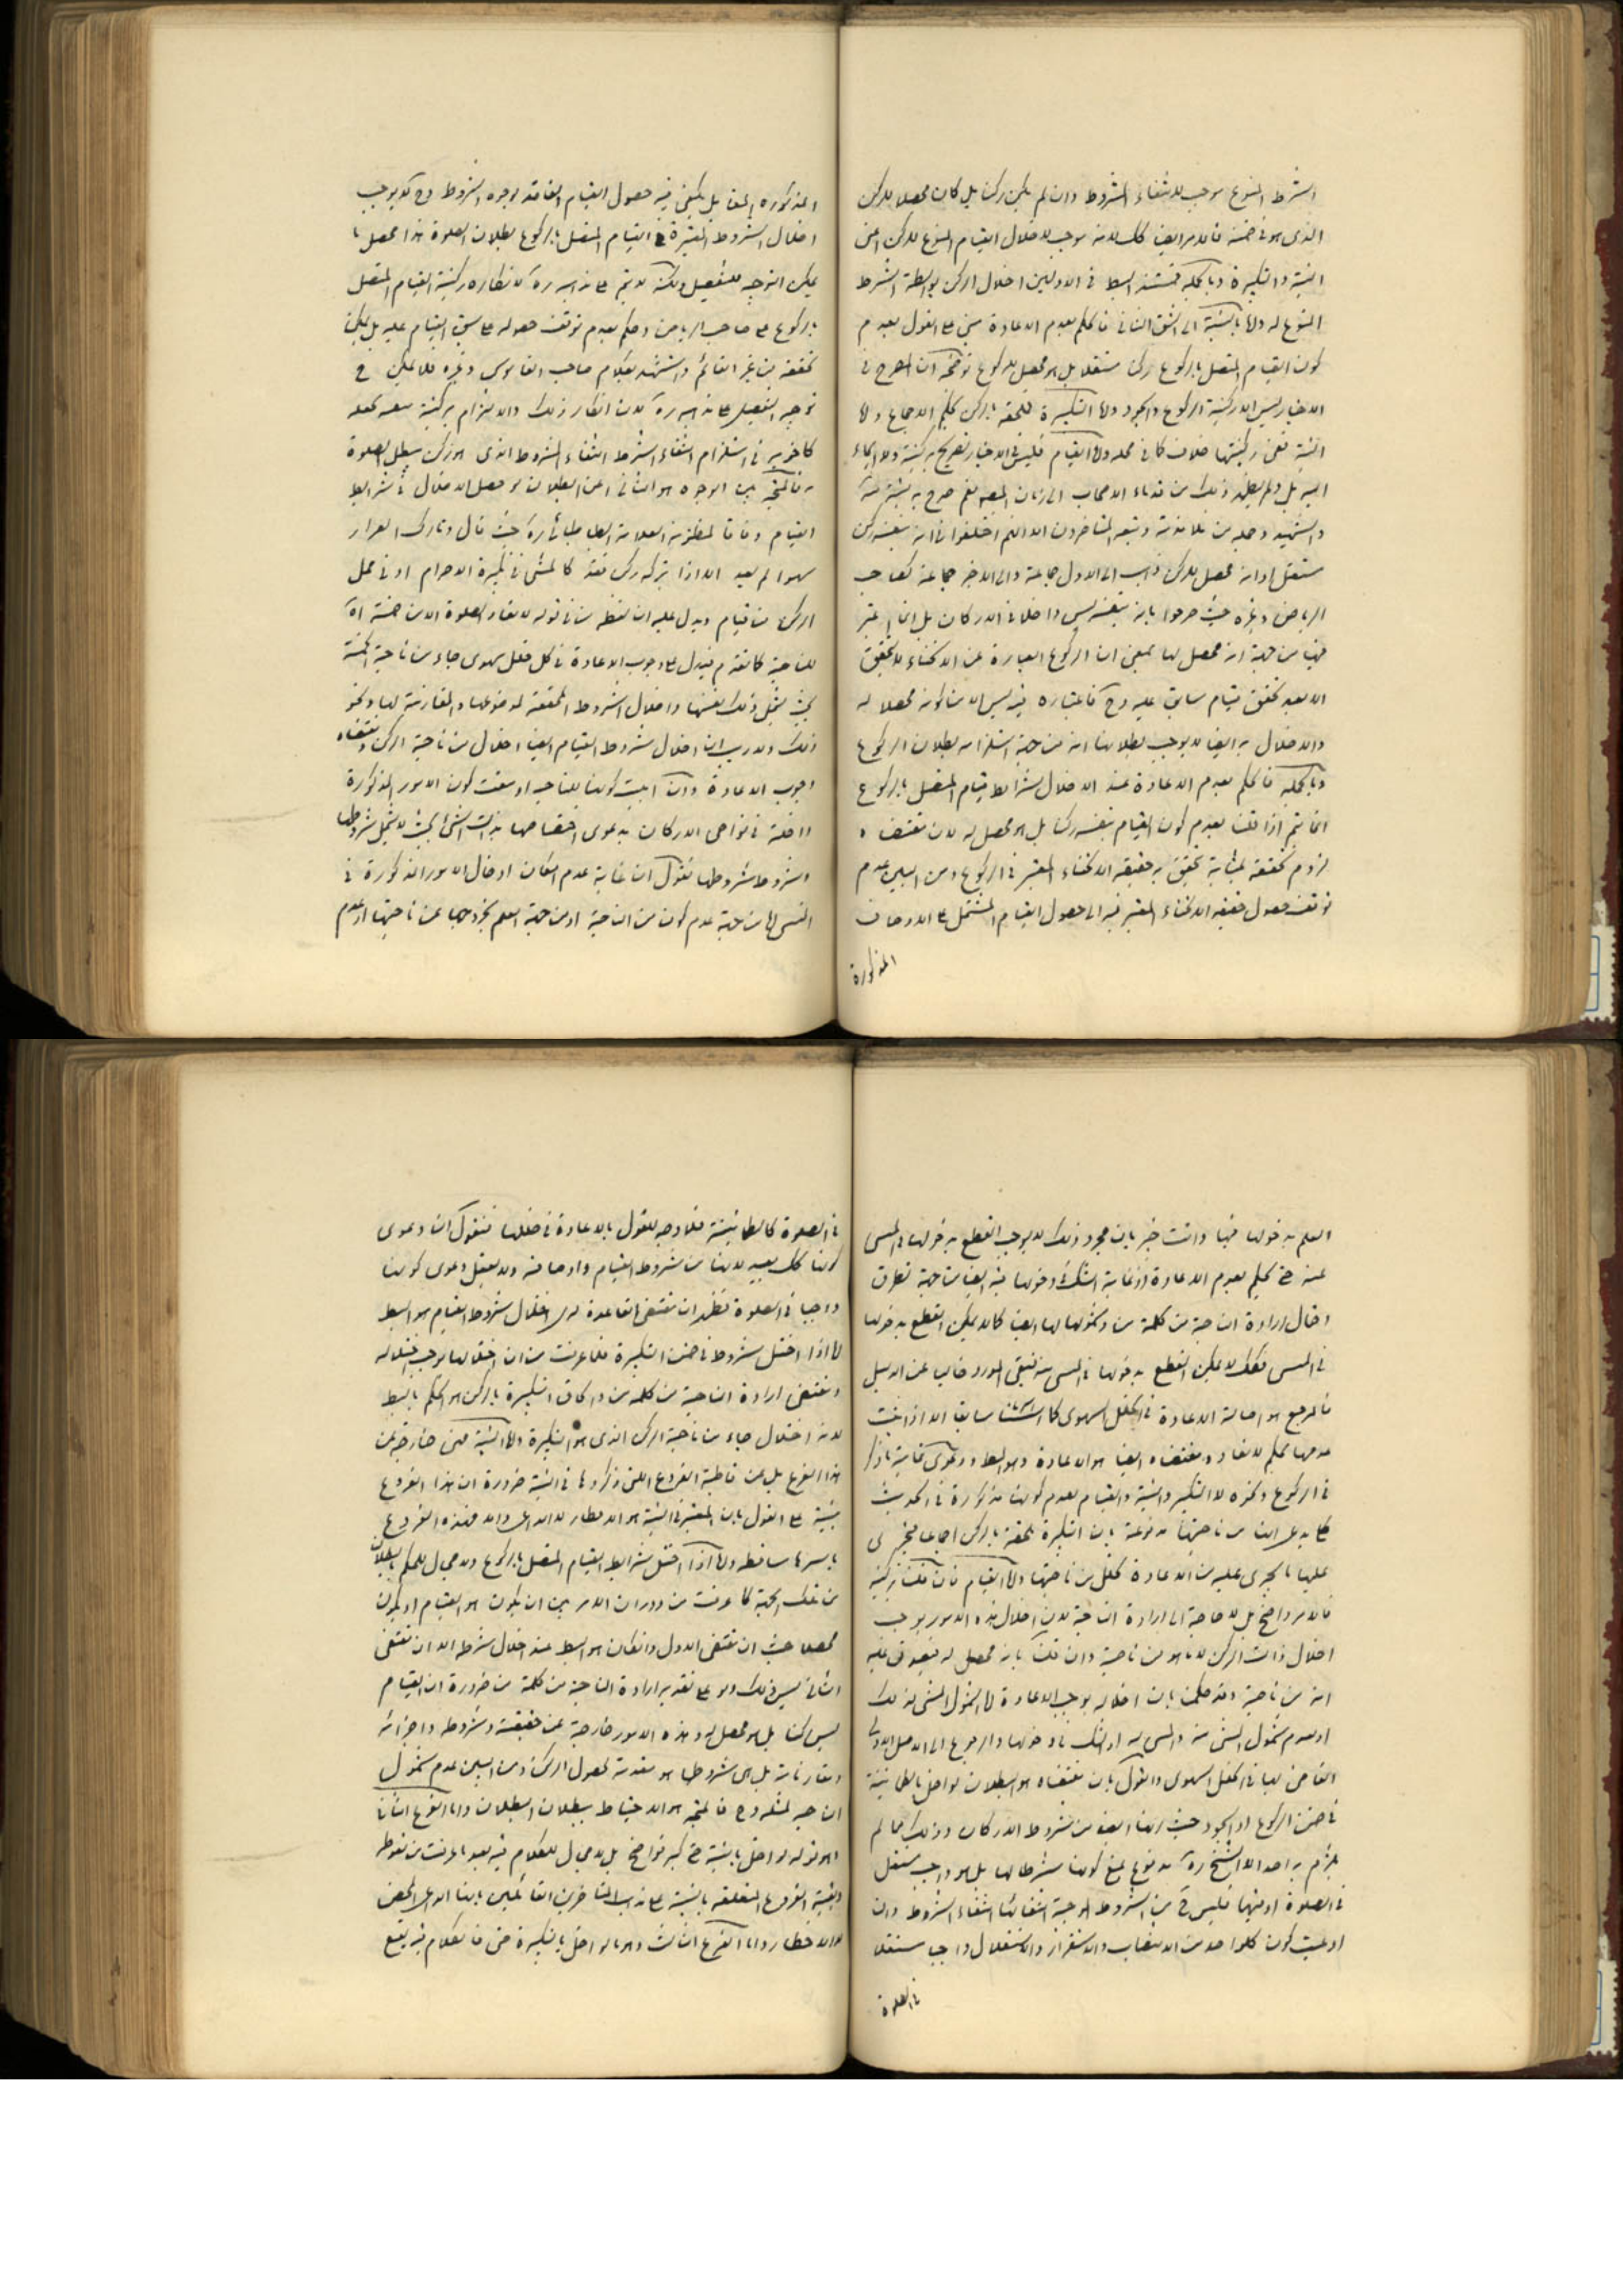 الشرط المنوع موجب لانتفاء المشروط وان لم يكن ركنا بل كان محصلا للركن
الذى هو فى ضمنه فالامر ايضا كك لانه موجب لاخلال القيام المنوع للركن اعنى
النية والتكبيرة وبالجملة فمستند البط فى الاولين اخلال الركن بواسطة الشرط
المنوع له واما بالنسبة الى الشق الثانى فالحكم بعدم الاعادة مبنى على القول بعدم
كون القيام المتصل بالركوع ركنا مستقلا بل هو محصل للركوع توضيحه ان المصرح فى
الاخبار ليس الا ركنية الركوع والسجود واما التكبيرة فملحقة بالركن بحكم الاجماع واما
النية ففى ركنيتها خلاف كما فى محله واما القيام فليس فى الاخبار تصريح بركنيته ولا ايماء
اليه بل ولم يظهر ذلك من قدماء الاصحاب الى زمان المصنف نعم صرح به
والشهيد وجملة من تلامذته وتبعه المتاخرون الا انهم اختلفوا فى انه بنفسه ركن
مستقل او انه محصل للركن ذهب الى الاول جماعة والى الاخير جماعة كصاحب
الرياض وغيره حيث صرحوا بانه بنفسه ليس داخلا فى الاركان بل انما اعتبر
فيها من جهة انه محصل لها بمعنى ان الركوع العبارة عن الانحناء لا يتحقق
الا بعد تحقق قيام سابق عليه وح فاعتباره فيه ليس الا من كونه محصلا له
والاخلال به ايضا لا يوجب بطلانها الا من جهة استلزامه بطلان الركوع
وبالجملة فالحكم بعدم الاعادة عند الاخلال بشرائط قيام المتصل بالركوع
انما يتم اذا قلنا بعدم كون القيام بنفسه ركنا بل هو محصل له لان مقتضاه
لزوم تحققه بمثابة يتحقق به حقيقة الانحناء المعتبر فى الركوع ومن البين عدم
توقف حصول حقيقة الانحناء المعتبر فيه الى حصول القيام المشتمل على الاوصاف
المذكورة
المذكورة المقابل بل يكفى فيه حصول القيام الفاقد لوجوه الشروط وح لا يوجب
اخلال الشروط المعتبرة فى القيام المتصل بالركوع بطلان الصلوة هذا محصل ما
يمكن التوجيه للتفصيل ولكنه لا يتم على مذهبه ره لانكاره ركنية القيام المتصل
بالركوع على صاحب الرياض وحكم بعدم توقف حصوله على سبق القيام عليه بل يمكن
تحققه من غير القائم واستشهد بكلام صاحب القاموس وغيره فلا يمكن ح
توجيه التفصيل على مذهبه ره لان انكار ذلك والالتزام بركنيته بنفسه يجعله
كالاخريه فى استلزام انتفاء الشرط انتفاء المشروط الذى هو ركن مبطل للصلوة
فالمتجه بين الوجوه هو الثانى اعنى البطلان لو حصل الاخلال فى شرائط
القيام وفاقا لمنظومة العلامة الطباطبائى ره حيث قال وتارك القرار
سهوا لم يعد الا اذا بتركه ركن فقد كالمشى فى تكبيرة الاحرام او فى محل
الركن من قيام ويدل عليه ان لفظة من فى قوله لا تعاد الصلوة الا من خمسة اه
للناحية كما تقدم فيدل على وجوب الاعادة فى كل خلل سهوى جاء من ناحية الخمسة
بحيث يشمل ذلك نفسها واخلال الشروط المحققة لموضوعها والمقارنة لها ونحو
ذلك ولاريب ان اخلال شروط القيام ايضا اخلال من ناحية الركن ومقتضاه
وجوب الاعادة وان ابيت كونها للناحية او منعت كون الامور المذكورة
داخلة فى نواحى الاركان بدعوى اختصاصها بذات الشئ بحيث لا يشمل شروطها
وشروط شروطها نقول ان غاية عدم امكان ادخال الامور المذكورة فى
المستثنى اما من جهة عدم كون من للناحية او من جهة العلم بخروجها عن ناحيتها او عدم
العلم بدخولها فيها وانت خبير بان مجرد ذلك لا يوجب القطع بدخولها فى المستثنى
منه حتى يحكم بعدم الاعادة اذ غاية الشك فى دخولها فيه ايضا من جهة تطرق
احتمال ارادة الناحية من كلمة من وشمولها لها ايضا كما لا يمكن القطع بدخولها
فى المستثنى فكذلك لا يمكن القطع بدخولها فى المستثنى منه فيبقى المورد خاليا عن الدليل
فالمرجع هو اصالة الاعادة فى الخلل السهوى كما اسسنا سابقا الا اذا ثبت
عدمها بحكم لا تعاد ومقتضاه ايضا هو الاعادة وهو البط ودعوى تمامية ما ذكر
فى الركوع ونحوه لا التكبير والنية والقيام لعدم كونها مذكورة فى الحديث
حتى يدعى انها من ناحيتها مدفوعة بان التكبيرة ملحقة بالركن اجماعا فيجرى
عليها ما يجرى عليه من الاعادة بخلل من ناحيتها واما القيام فان قلت بركنيته
فالامر واضح بل لا حاجة الى ارادة الناحية لان اخلال هذه الامور يوجب
اخلال ذات الركن لا ما هو من ناحيته وان قلت بانه محصل له فيصدق عليه
انه من ناحيته وقد حكمنا بان اخلاله يوجب الاعادة اما لشمول المستثنى لذلك
او لعدم شمول المستثنى منه والمستثنى له او الشك فى دخولها والرجوع الى الاصل الاولى
القاضى لها فى الخلل السهوى والقول بان مقتضاه هو البطلان لو اخل بالطمانينة
فى ضمن الركوع او السجود حيث انها ايضا من شروط الاركان وذلك مما لم
يلتزم به احد الا الشيخ ره مدفوع بمنع كونها شرطا لها بل هو واجب مستقل
فى الصلوة او فيهما فليس ح من الشروط الموجبة انتفائها انتفاء المشروط وان
ادعيت كون كل واحد من الانتصاب والاستقرار والاستقلال واجبا مستقلا
فى الصلوة
فى الصلوة كالطمانينة فلا وجه للقول بالاعادة فى خللها فنقول ان دعوى
كونها كك بعيد لانها من شروط القيام واوصافه ولا يعقل دعوى كونها
واجبا فى الصلوة فظهر ان مقتضى القاعدة لدى اختلال شروط القيام هو البط
اما اذا اختل شروط فى ضمن التكبيرة فلما عرفت من ان اختلالها يوجب اختلاله
ومقتضى ارادة الناحية من كلمة من والحاق التكبيرة بالركن هو الحكم بالبط
لانه اختلال جاء من ناحية الركن الذى هو التكبيرة واما النية فهى خارجة عن
هذا الفرع بل عن قاطبة الفروع اللتى ذكروها فى النية ضرورة ان هذا الفروع
مبنية على القول بان المعتبر فى النية هو الاخطار لا الداعى والا فهذه الفروع
باسرها ساقطة واما اذا اختل شرائط القيام المتصل بالركوع ولا مجال للحكم بالبطلان
من تلك الجهة كما عرفت من دوران الامر بين ان يكون هو القيام او يكون
محصلا حيث ان مقتضى الاول وان كان هو البط عند اخلال شرطه الا ان مقتضى
الثانى ليس ذلك ولو على تقدير ارادة الناحية من كلمة من ضرورة ان القيام
ليس ركنا بل هو محصل له وهذه الامور خارجة عن حقيقته وشروطه واجزائه
ومقارناته بل هى شروط ما هو مقدمة لحصول الركن ومن البين عدم شمول
الناحية لمثله وح فالمتجه هو الاحتياط ببطلان البطلان واما الفرع الثانى
وهو قوله لو اخل بالنية حتى كبر فواضح بل لا مجال للكلام فيه بعد ما عرفت من سقوطه
وبقية الفروع المتعلقة بالنية على مذهب المتاخرين القائلين بانها الداعى المحض
لا الاخطار واما الفرع الثالث وهو ما لو اخل بالتكبيرة حتى فالكلام فيه يقع